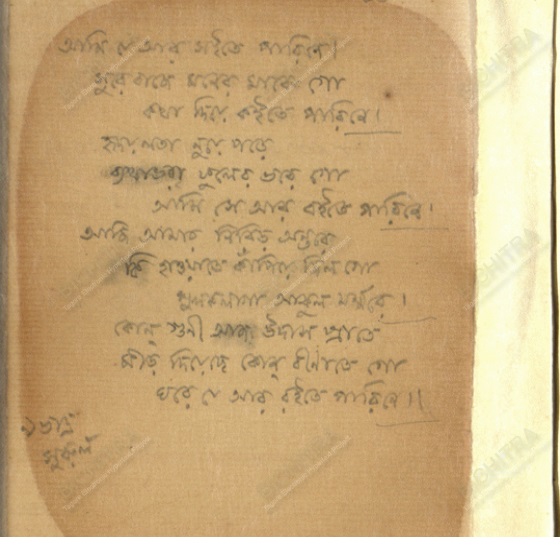 আমি যে আর সইতে পারিনে।
সুরে বাজে মনের মাঝে গো
কথা দিয়ে কইতে পারিনে।
হৃদয়লতা নুয়ে পড়ে
ব্যথাভরা ফুলের ভরে গো
আমি সে আর বইতে পারিনে।
আজি আমার নিবিড় অন্তরে
কি হাওয়াতে কাঁপিয়ে দিল গো
পুলকলাগা আকুল মর্ম্মরে।
কোন্ গুণী আজ উদাস প্রাতে
মীড় দিয়েছে কোন্ বীণাতে গো
ঘরে যে আর রইতে পারিনে॥
ভাদ্র
সুরুল